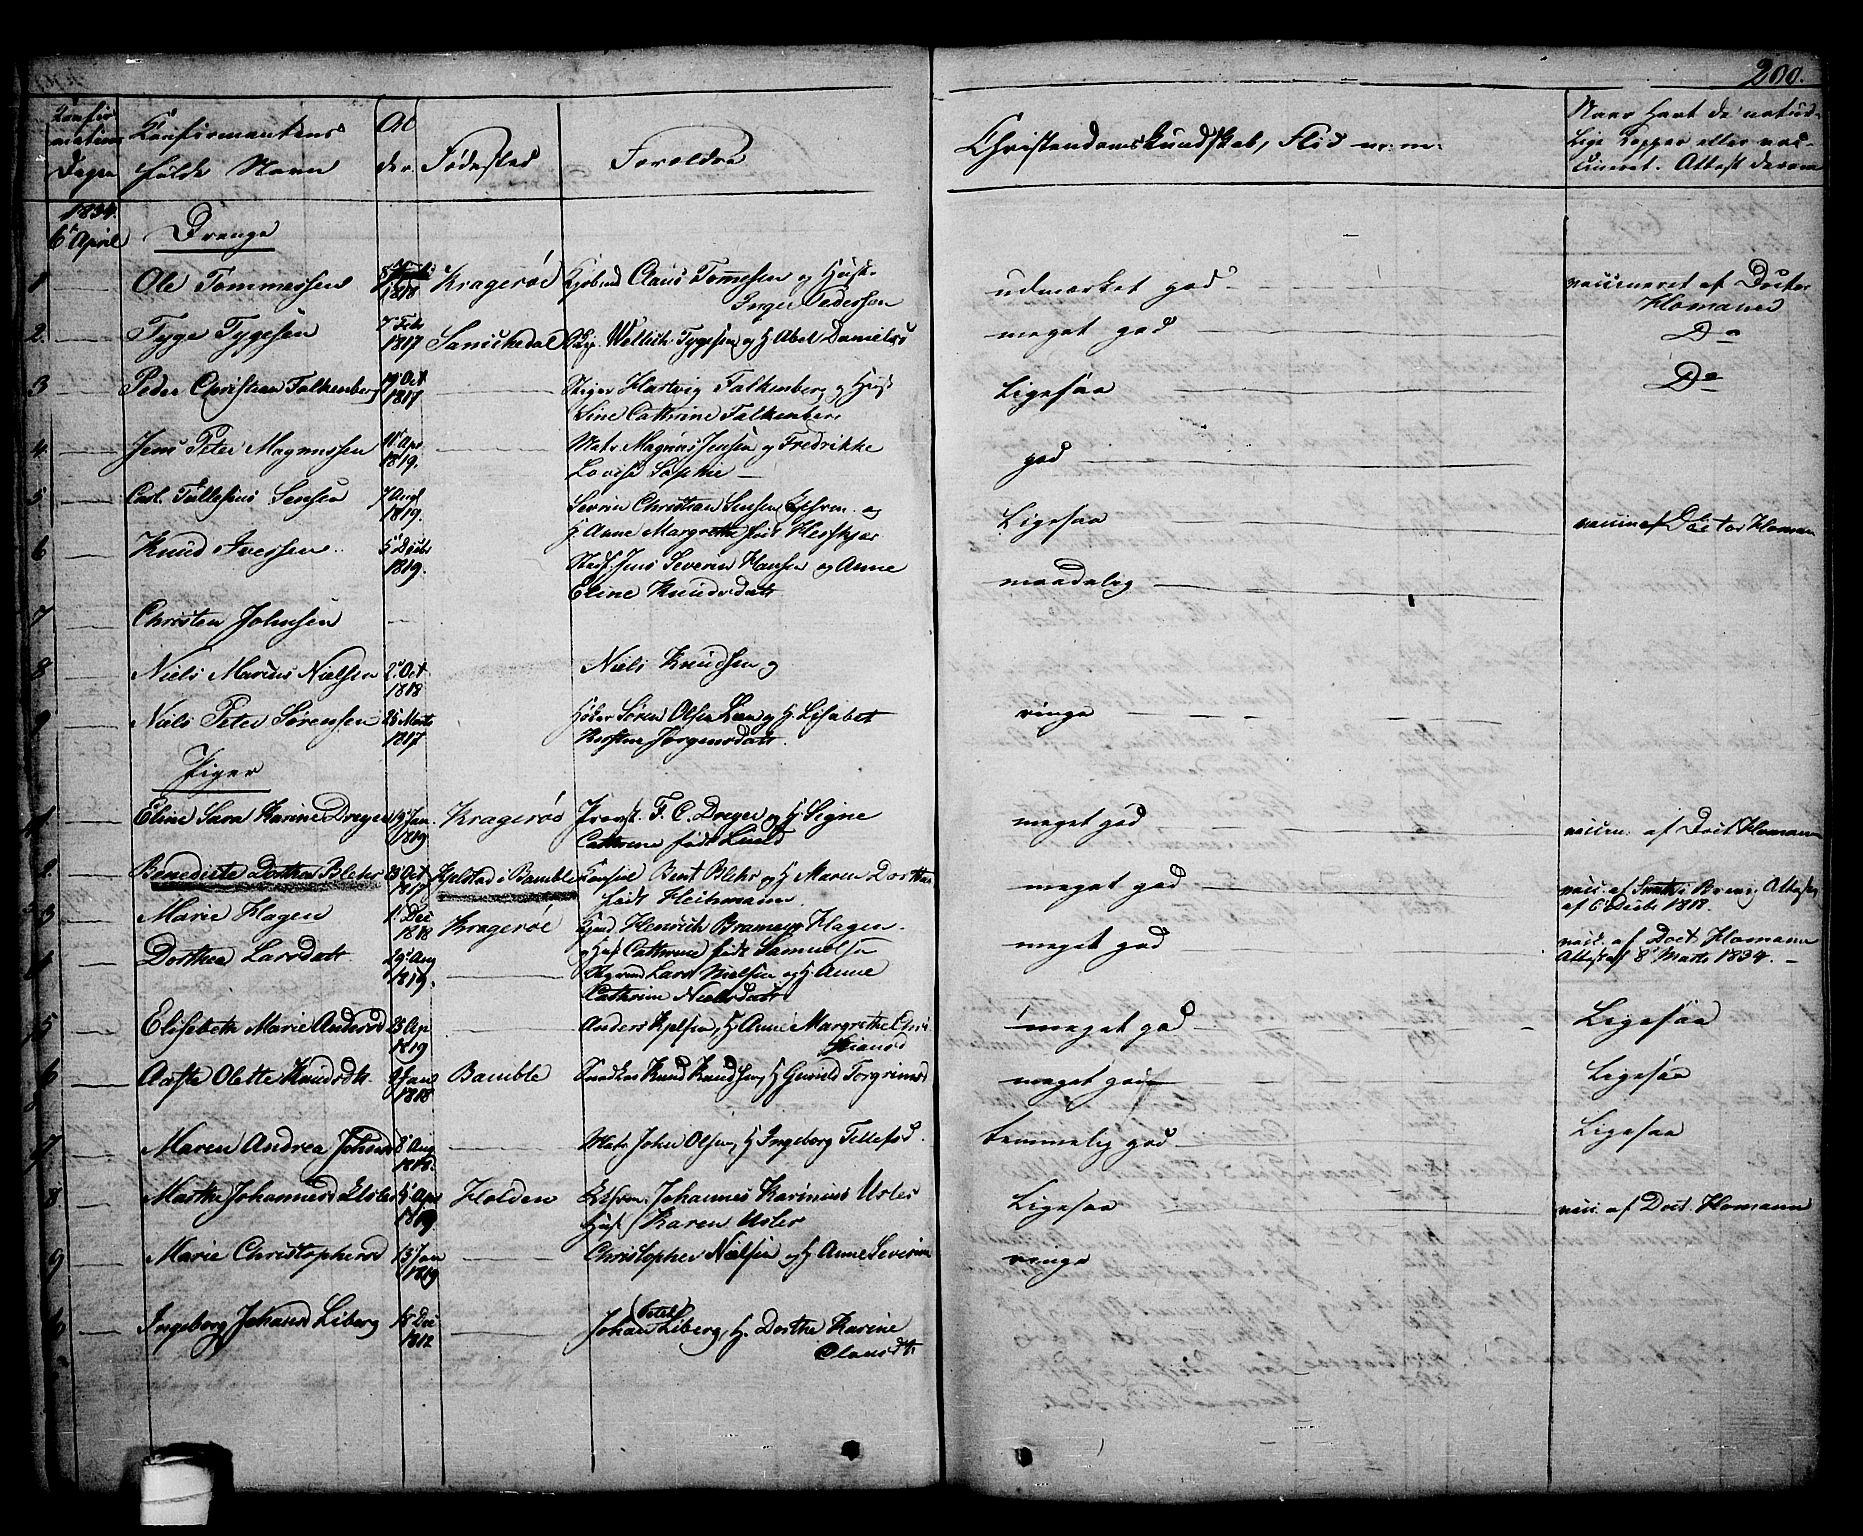 200.
Confir
mations
Dagen
Confirmantens
fulde Navn
Al
der.
Fødested
Forældre
Christendomskundskab, Flid m: m:
Naar havt de natur-
lige Kopper eller vac-
cineret. Attest derom
1834.
6te April
Drenge
1 Ole Tommessen 1818 Kragerøe Claus Tommesen og Hust.
Inger Pedersen
udmærket god
vaccineret af Doctor
Homann
2. Tyge Tygesen 7 Feb 1817 Sannikedal Tygesen og H Abel Danielsd
meget god
Do
3 Peder Christian Falkenberg 19 Oct 1817 Hartvig Falkenberg og Hust
Sine Cathrine Falkenberg
Ligesaa
Do
4 Jens Peter Magnussen 10 Apr 1819. Matr. Magnus Jensen og Fredrikke
Lovise Sophie
god
5 Carl Tullesius Jensen 7 Aug 1819. Severin Christian Jensen og
H. Anne Margrethe født
Ligesaa
vaccin af Doctor Homann
6 Knud Iversen 5 Decbr 1819. Jens Severin Hansen og Anne
Eline Knudsdatr
maadelig
7 Christen Johnsen
8 Niels Marius Nielsen 2 Oct 1818 Niels Knudsen og
9 Niels Peter Sørensen 25 Marts 1817 Søren Olsen og H. Lisabet
Kirstine Jørgensdatr.
ringe
Piger
1 Eline Sara Karine Dreyer 13 Jan. 1819 Kragerøe Provst. F. C. Dreyer og H Signe
Cathrine født Lund
meget god
vaccin. af Doct Homann
2. Benedicte Dorthea Blehr 23 Oct 1817 Kjølstad i Bamble Bent Blehr og H Maren Dorthea
født Heitmann.
meget god
vacc. af Attest,
af 6 Decbr 1818.
3 Marie Hagen 1 Dec 1818 Kragerøe Henrich Hagen
og Hust Cathrine født Samuelsen
meget god
vacc. af Doct. Homann
Attest af 8 Marts 1834.
4 Dorthea Larsdatr 29 Aug 1819. Lars Nielsen og H Anne
Cathrine Nielsdatr
5 Elisabeth Marie Andersd 23 Ap 1819 Anders Kjelsen, H Anne Margrethe Chri
stiansd
meget god
Ligesaa
6 Aaste Olette Knudsdtr. Jan 1818 Bamble Knud Knudsen, H Gunild Torgrimsd
meget god
Ligesaa
7 Maren Andrea Johnsd 8 Aug 1818. Matr John Olsen, H Ingeborg Tellefsd.
temmelig god
Ligesaa
8 Marthe Johannesd Usler 5 Apr 1819. Holden Johannes Karinius Usler
Hust Karen Usler
Ligesaa
vacc. af Doct. Homann
9 Marie Christophersd 13 Jan 1819 Christopher Nielsen og H Anne Severine
ringe
10 Ingeborg Johansd Liberg 18 Dec 1812 Johan (Peter) Liberg, H. Dorthe Karine
Clausdtr.